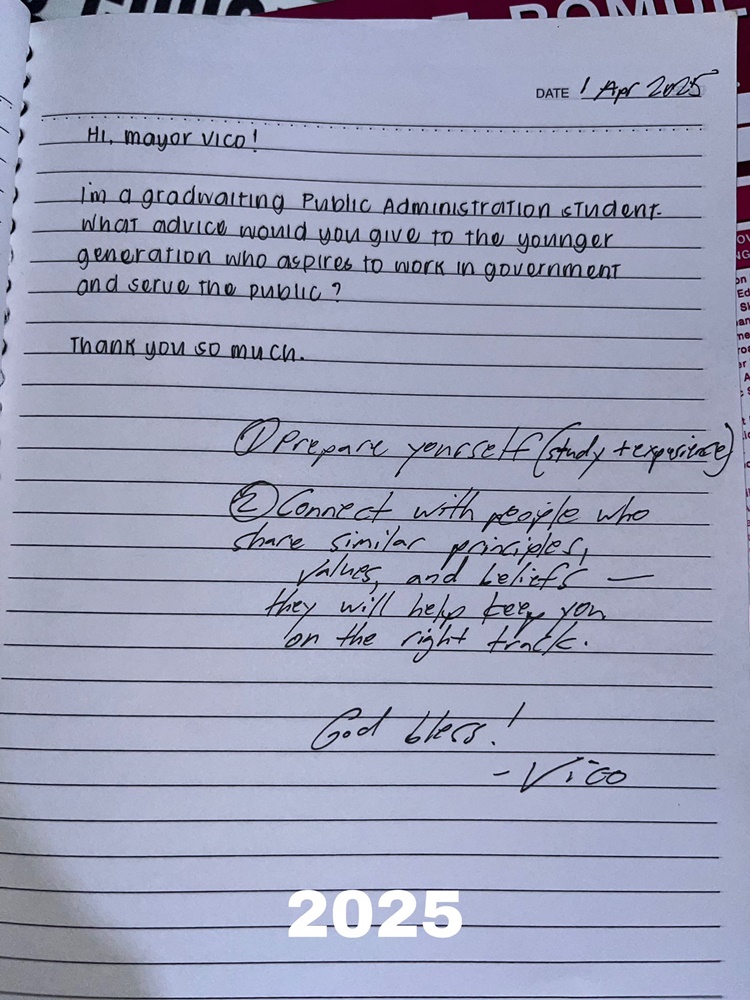 DATE 1 Apr 2025
Hi, mayor vico!
I'm a gradwaiting Public Administration student.
What advice would you give to the younger
generation who aspires to work in government
and serve the public?
Thank you so much.
① Prepare yourself (study + experience)
② Connect with people who
share similar principles,
values, and beliefs —
they will help keep you
on the right track.
God bless!
- Vico
2025